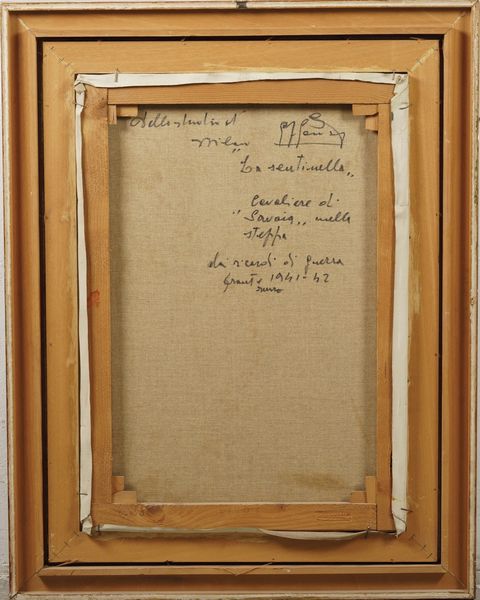 Dello studio di
Milano
"La sentinella"
Cavaliere di
"Savoia" nella
steppa
dai ricordi di guerra
fronte 1941-42
russo